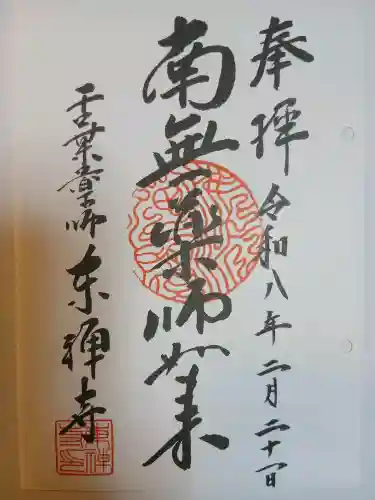 奉拝
令和八年二月二十一日
南無薬師如来
雲葉薬師
東禅寺